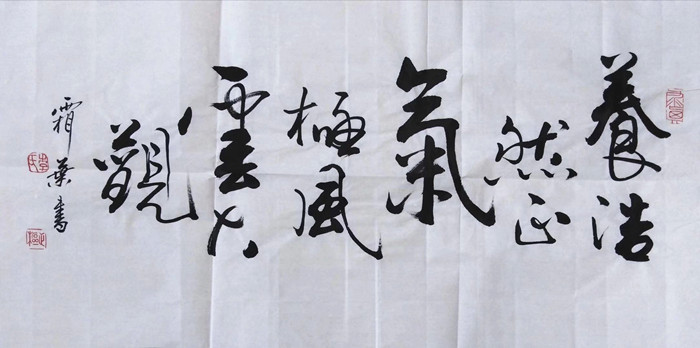 養浩
然正
氣
極風
雲大
觀
霜葉書